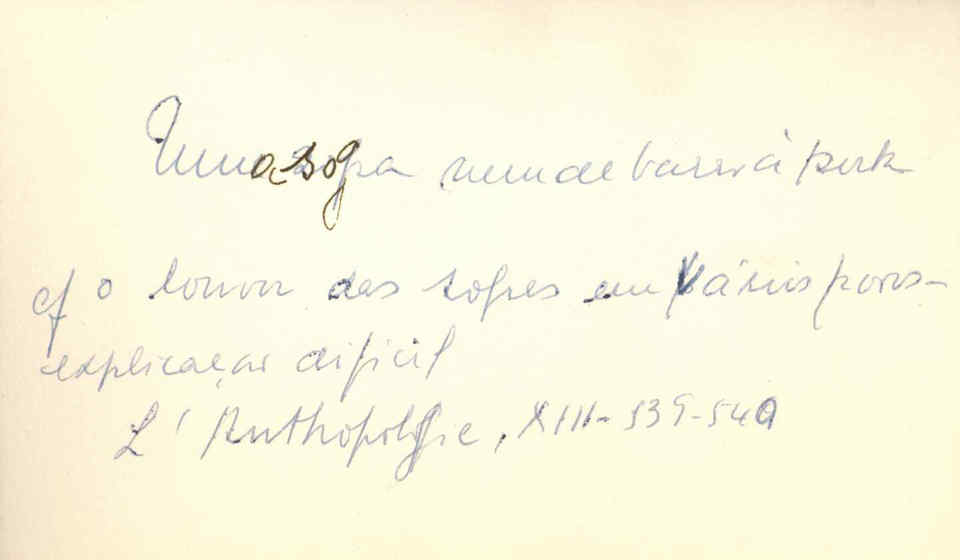 Uma sogra nem de barro à porta
cf o horror das sogras em vários povos-
explicação dificil
L'Anthropologie, XIII-539-540